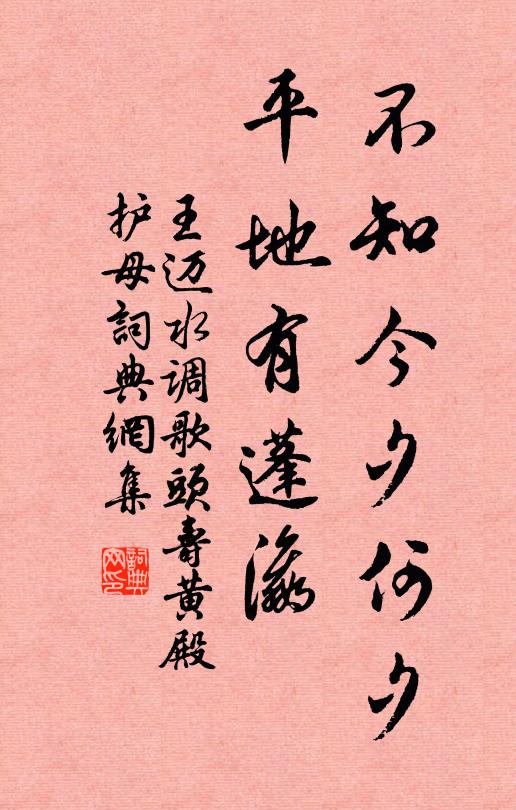 不知今夕何夕
平地有蓬瀛
王迈水调歌头寿黄殿
护母词典網集
詞典
网印